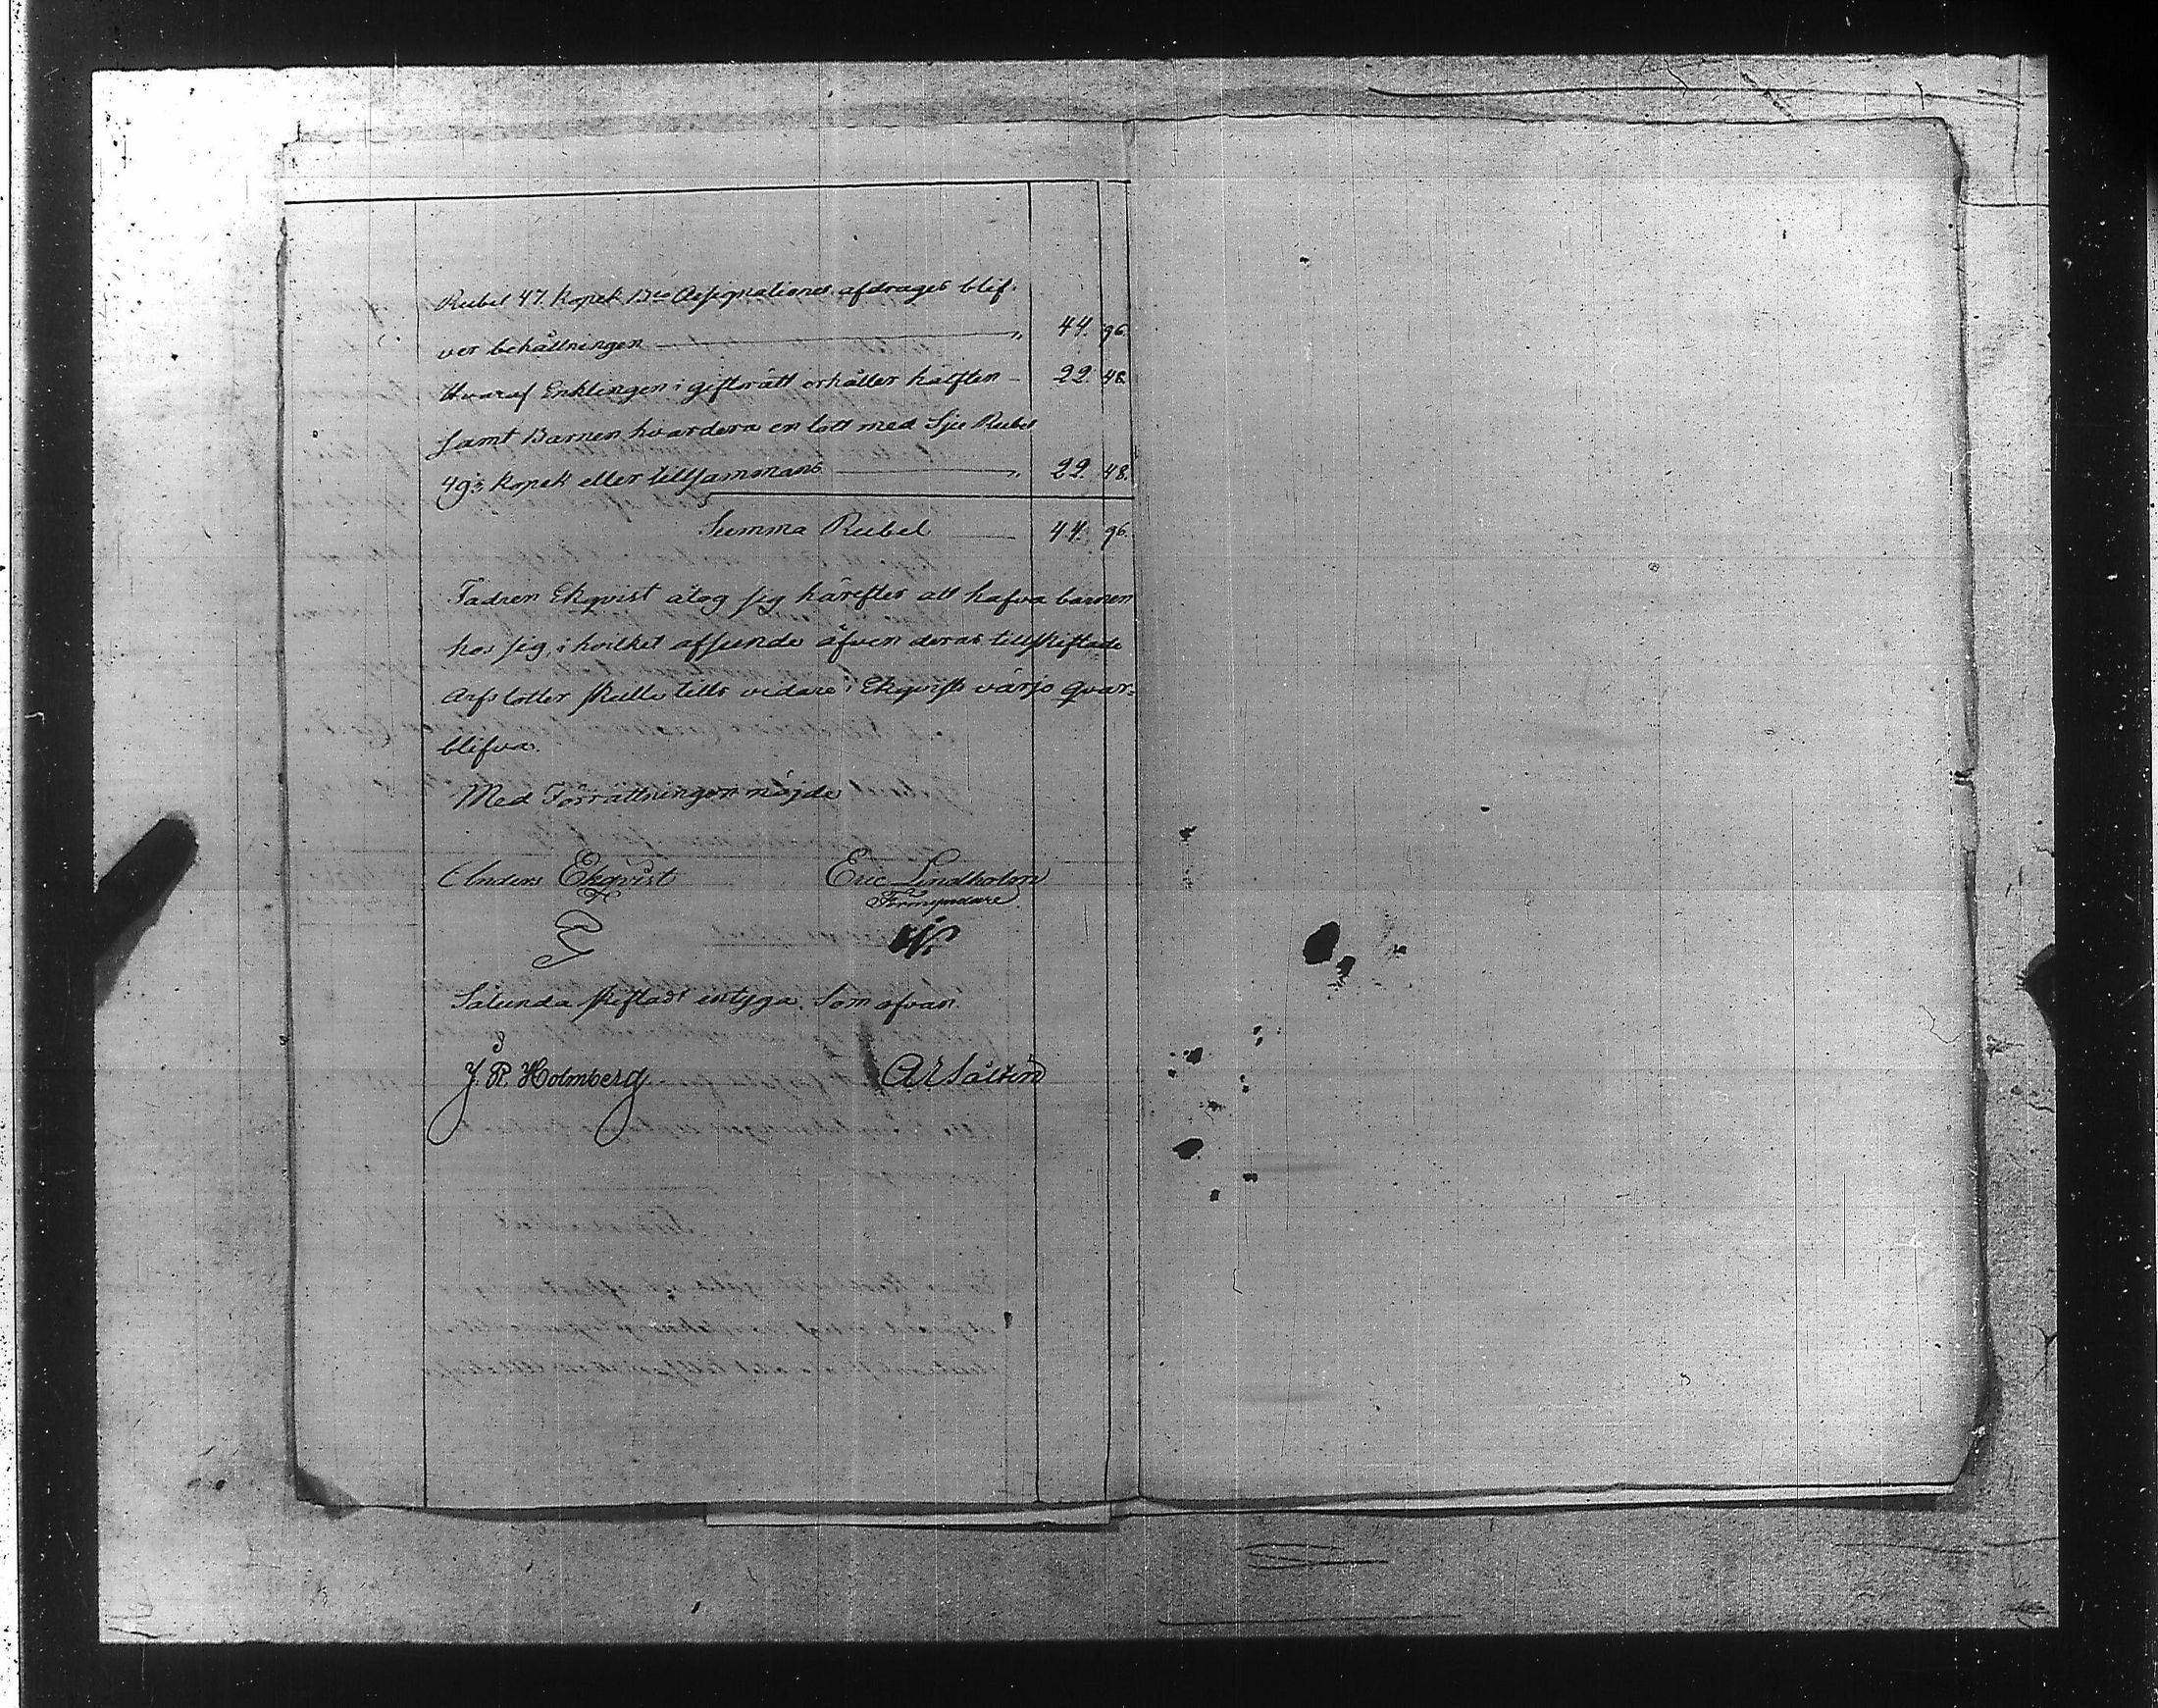 Rubel 47. kopek Bco Assignationer afdrages blif-
ver behållningen " 44. 96.
Hvaraf Enklingen i giftorätt erhåller hälften 22. 48.
samt Barnen hvardera en lott med Sju Rubel
49⅓ kopek eller tillsammans " 22. 48.
Summa Rubel 44. 96.
Fadren Ekqvist åtog sig härefter att hafva barnen
hos sig, i hvilket afseende äfven deras tillskiftade
Arfslotter skulle tills vidare i Ekqvists värjo qvar-
blifva.
Med Förrättningen nöjde
Anders Ekqvist Eric Lindholm
Förmyndare
Sålunda skiftadt intyga. Som ofvan.
J. P. Holmberg